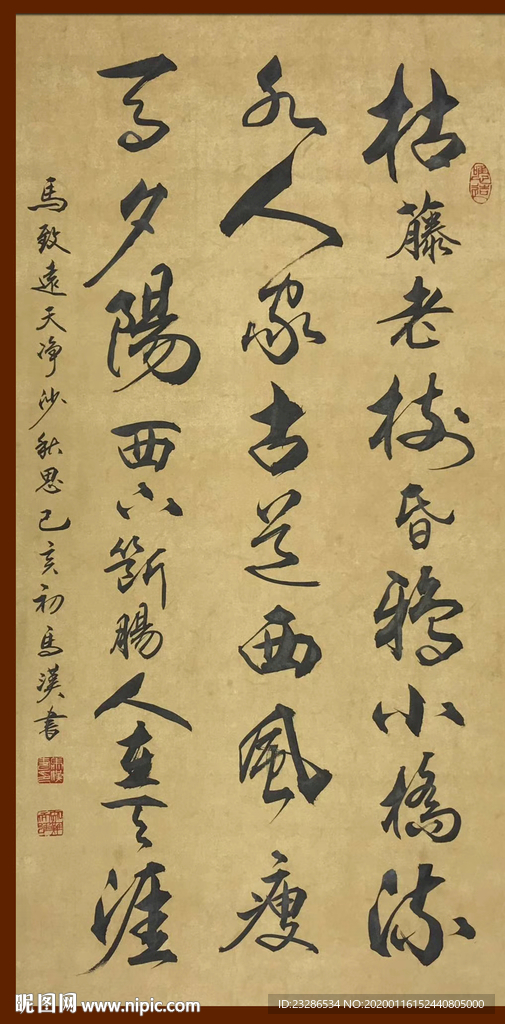 枯藤老樹昏鴉小橋流
水人家古道西風瘦
馬夕陽西下斷腸人在天涯
馬致遠天净沙秋思己亥初馬漢書
昵图网 www.nipic.com
ID:23286534 NO:20200116152440805000